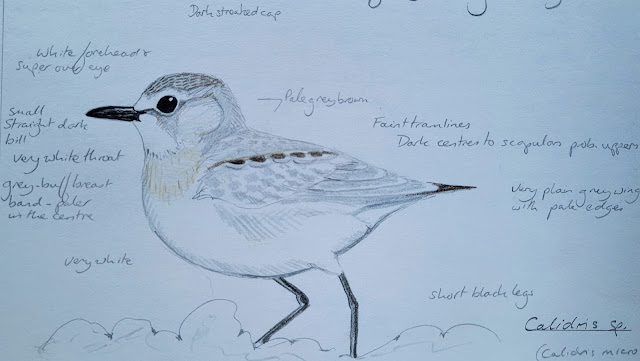 Dark streaked cap
White forehead &
super over eye
Pale grey brown
small
straight dark
bill
Faint tramlines
Dark centres to scapulars prob. uppers
very white throat
grey-buff breast
band - paler
in the centre
very plain grey wing
with pale edges
very white
short black legs
Calidris sp.
(Calidris micro